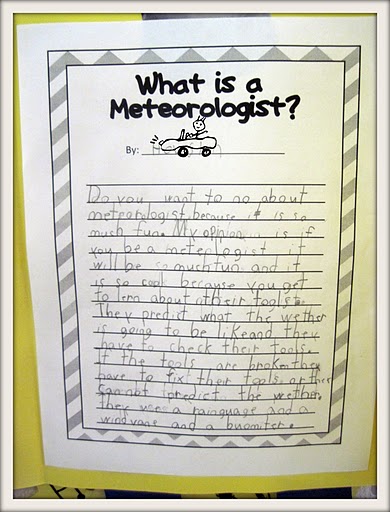 What is a
Meteorologist?
By:
Do you want to no about
meteorologist because it is so
much fun. My opinion is if
you be a meteologist it
will be so much fun and it
is so cool because you get
to lern about atheir tools.
They predict what the wether
is going to be like and they
have to check their tools.
If the tools are broken they
have to fix their tools or they
cannot predict the wether.
They use a rainguage and a
windvane and a buomiter.